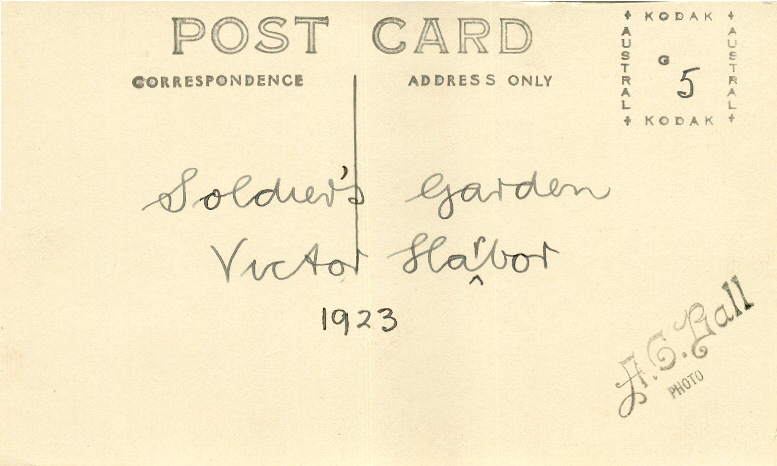 POST CARD
CORRESPONDENCE
ADDRESS ONLY
KODAK
AUSTRAL
AUSTRAL
G
5
KODAK
Soldier's Garden
Victor Harbor
1923
Gall
PHOTO